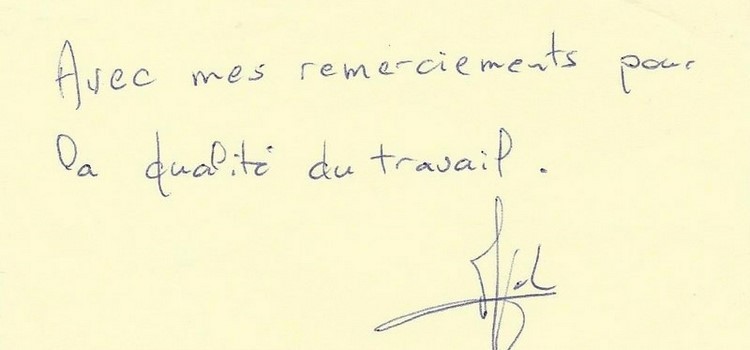 Avec mes remerciements pour
la qualité du travail.